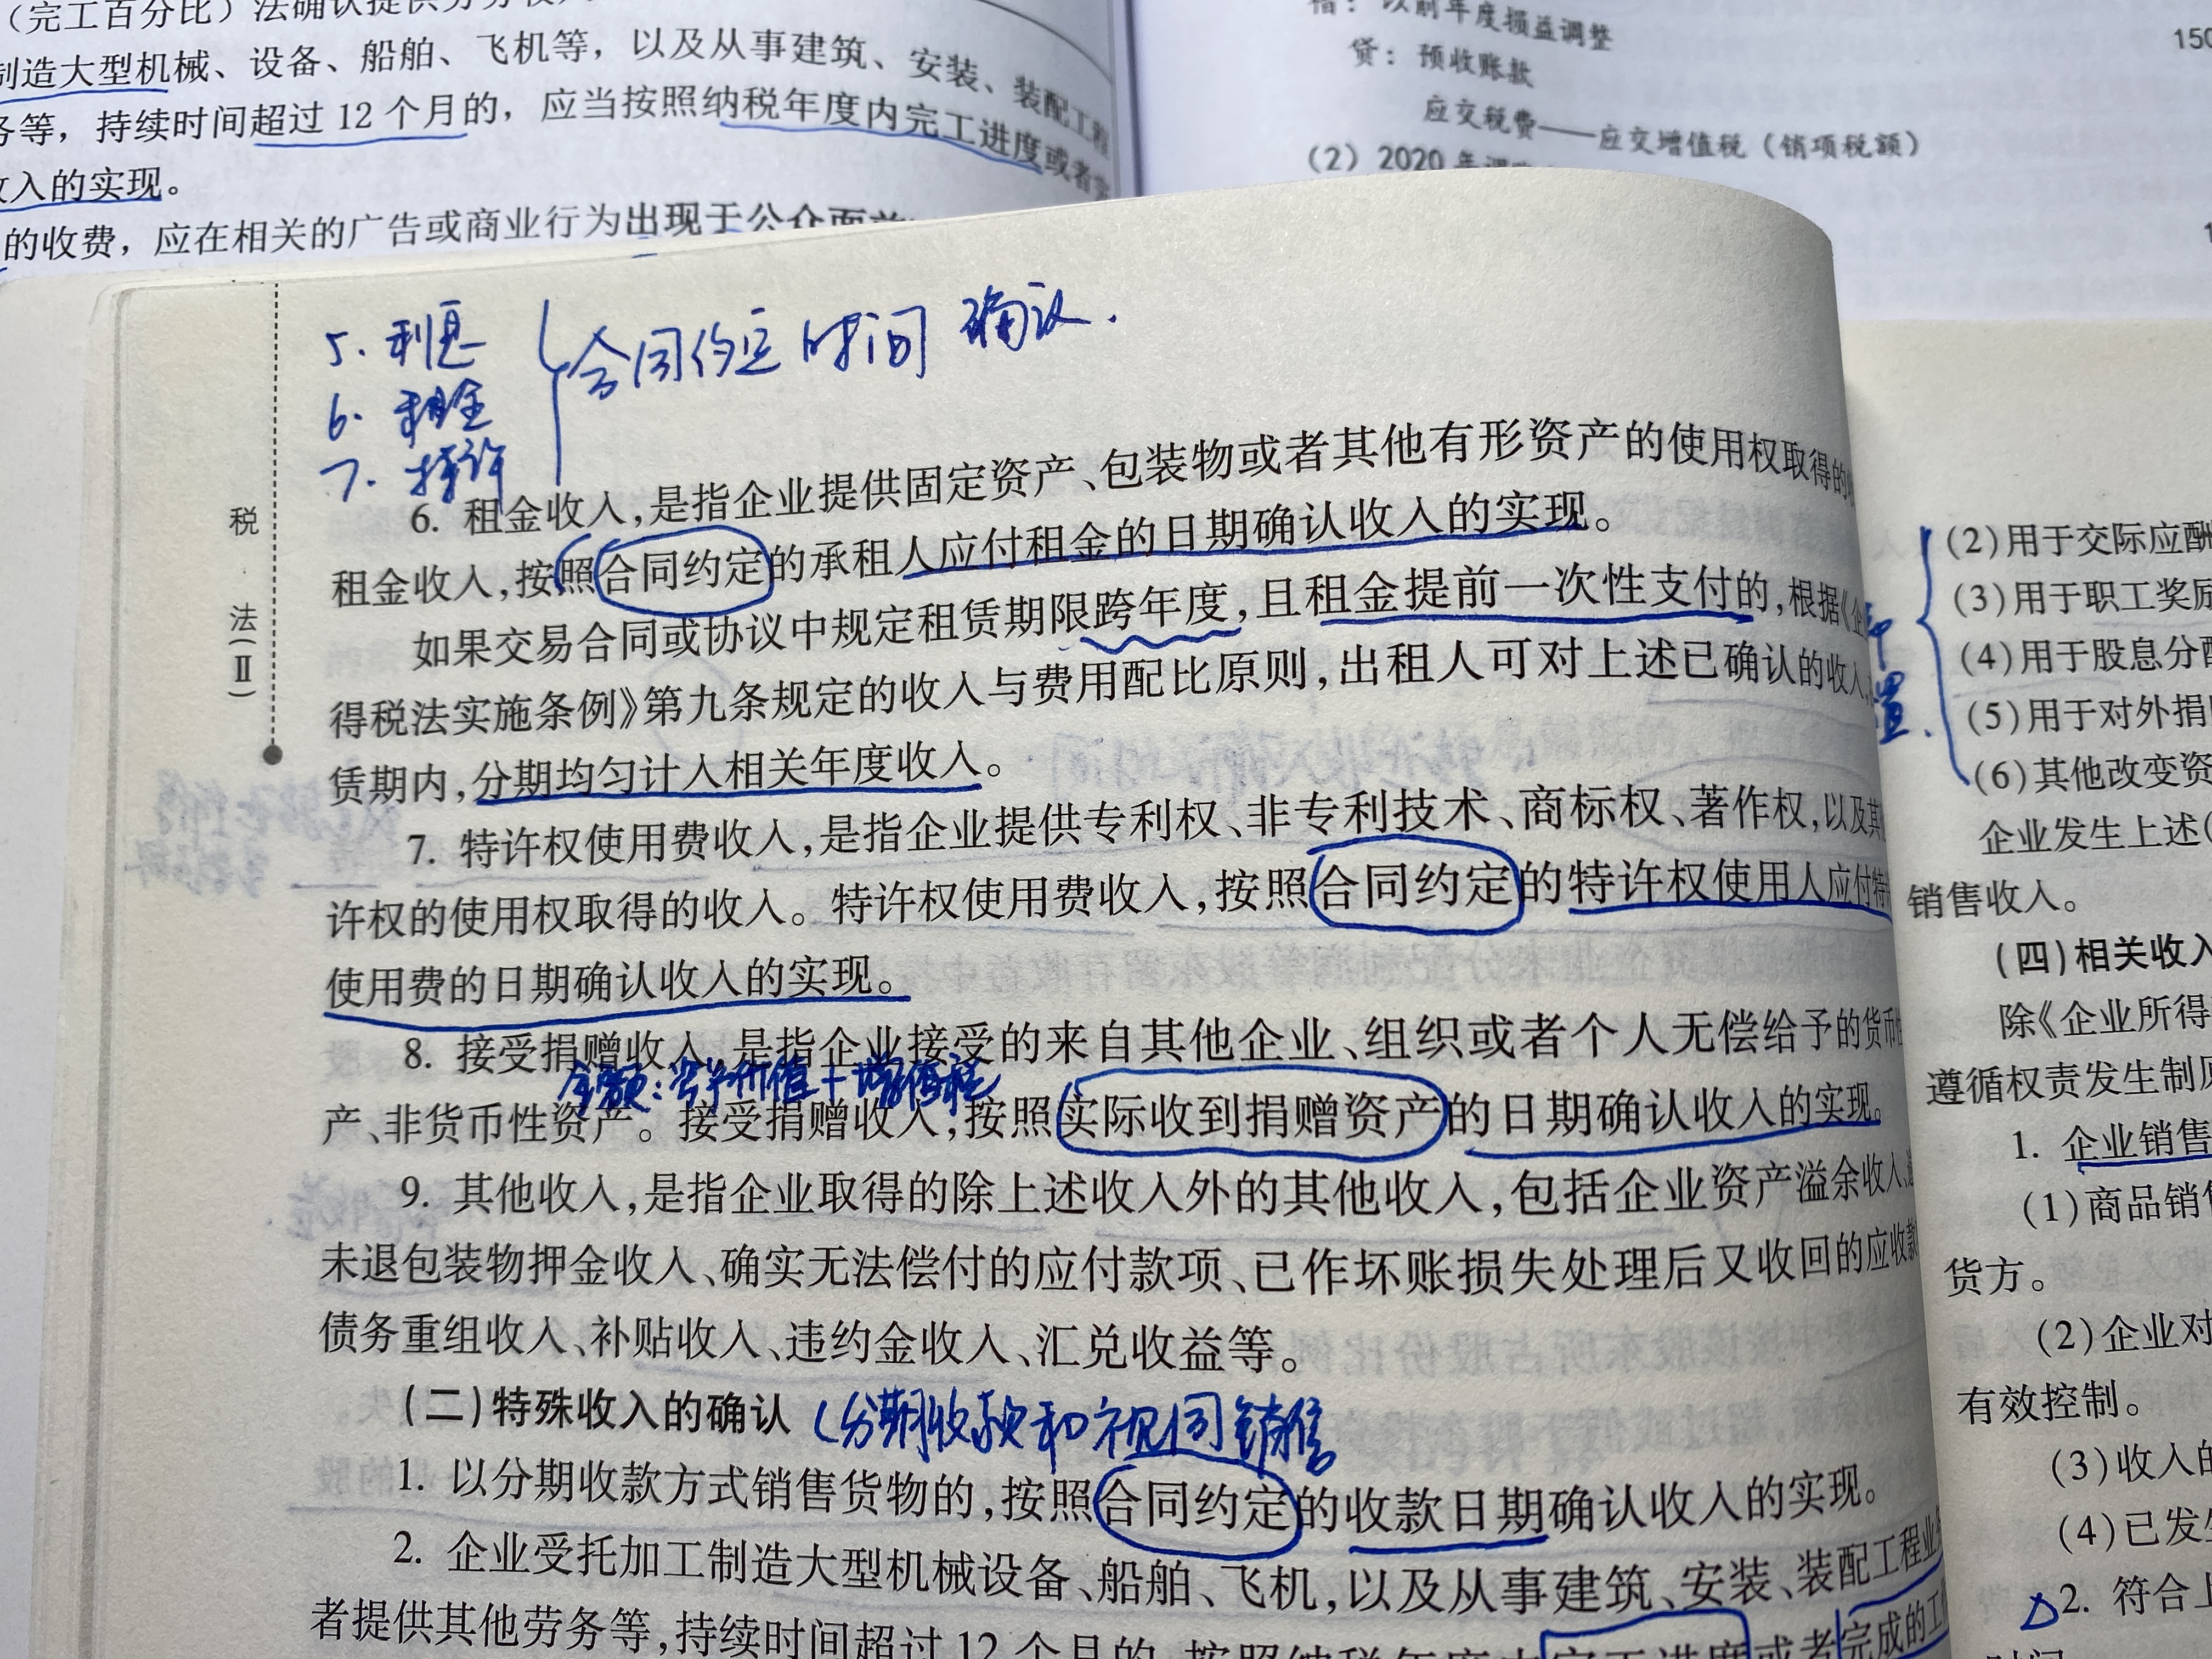 税
法
（Ⅱ）
5. 利息
6. 租金
7. 特许
合同约定时间确认.
6. 租金收入,是指企业提供固定资产、包装物或者其他有形资产的使用权取得的
租金收入,按照合同约定的承租人应付租金的日期确认收入的实现。
如果交易合同或协议中规定租赁期限跨年度,且租金提前一次性支付的,根据《企
得税法实施条例》第九条规定的收入与费用配比原则,出租人可对上述已确认的收入
赁期内,分期均匀计入相关年度收入。
7. 特许权使用费收入,是指企业提供专利权、非专利技术、商标权、著作权,以及其
许权的使用权取得的收入。特许权使用费收入,按照合同约定的特许权使用人应付特
使用费的日期确认收入的实现。
8. 接受捐赠收入,是指企业接受的来自其他企业、组织或者个人无偿给予的货币
产、非货币性资产。接受捐赠收入,按照实际收到捐赠资产的日期确认收入的实现。
9. 其他收入,是指企业取得的除上述收入外的其他收入,包括企业资产溢余收入、
未退包装物押金收入、确实无法偿付的应付款项、已作坏账损失处理后又收回的应收款
债务重组收入、补贴收入、违约金收入、汇兑收益等。
(二)特殊收入的确认
1. 以分期收款方式销售货物的,按照合同约定的收款日期确认收入的实现。
2. 企业受托加工制造大型机械设备、船舶、飞机,以及从事建筑、安装、装配工程业
者提供其他劳务等,持续时间超过12个月的,按照纳税年度内完工进度或者完成的工
(完工百分比)法确认提供劳务
制造大型机械、设备、船舶、飞机等，以及从事建筑、安装、装配工程
务等，持续时间超过 12 个月的，应当按照纳税年度内完工进度或者
收入的实现。
的收费，应在相关的广告或商业行为出现于公众面前
借：以前年度损益调整
贷：预收账款
应交税费——应交增值税（销项税额）
(2) 2020 年
(2)用于交际应酬
(3)用于职工奖励
(4)用于股息分配
(5)用于对外捐
(6)其他改变资
企业发生上述(
销售收入。
(四)相关收入
除《企业所得
遵循权责发生制原
1. 企业销售
(1)商品销售
货方。
(2)企业对
有效控制。
(3)收入的
(4)已发生
2. 符合上